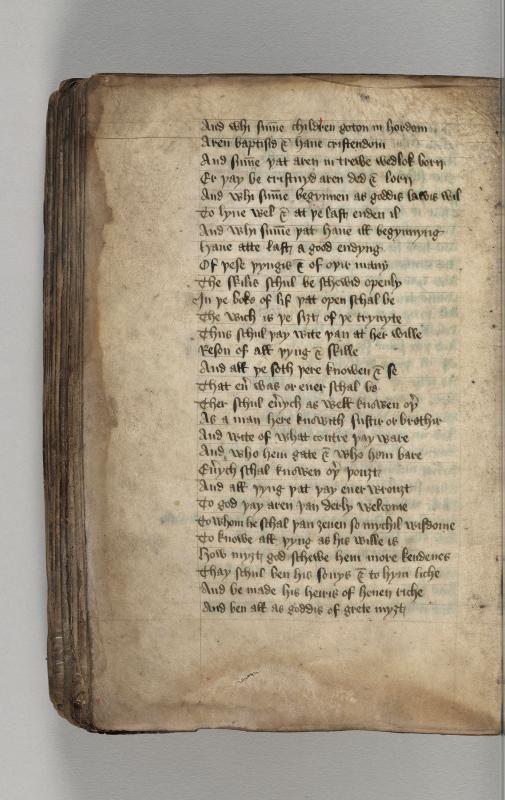 And whi sum̄e children goton in hordom
Aren baptisid & haue cristendom
And sum̄e þat aren in trewe wedlok born
Er þay be cristnyd aren ded & lorn
And whi sum̄e begynnen as goddis lawis wil
To lyue wel & at þe last enden il
And whi sum̄e þat haue ill begynnyng
Haue atte last a good endyng
Of þese þyngis & of oþir many
The skilis schul be schewid openly
In þe boke of lif þat open schal be
The wich is þe siȝt of þe trynyte
Thus schul þay wite þan at her wille
Reson of all þyng & skille
And all þe soth þere knowen & se
That eu̾ was or euer schal be
Ther schul eu̾ych as well knowen oþ̾
As a man here knowith sustir or brothir
And wite of what contre þay ware
And who hem gate & who hem bare
Eu̾ych schal knowen oþ̾ þouȝt
And all þyng þat þay euer wrouȝt
To god þay aren þan derly welcome
To whom he schal þan ȝeuen so mychil wisdome
To knowe all þyng as his wille is
How myȝt god schewe hem more kendenes
Thay schul ben his sonys & to hym liche
And be made his heiris of heuen riche
And ben all as goddis of grete myȝt